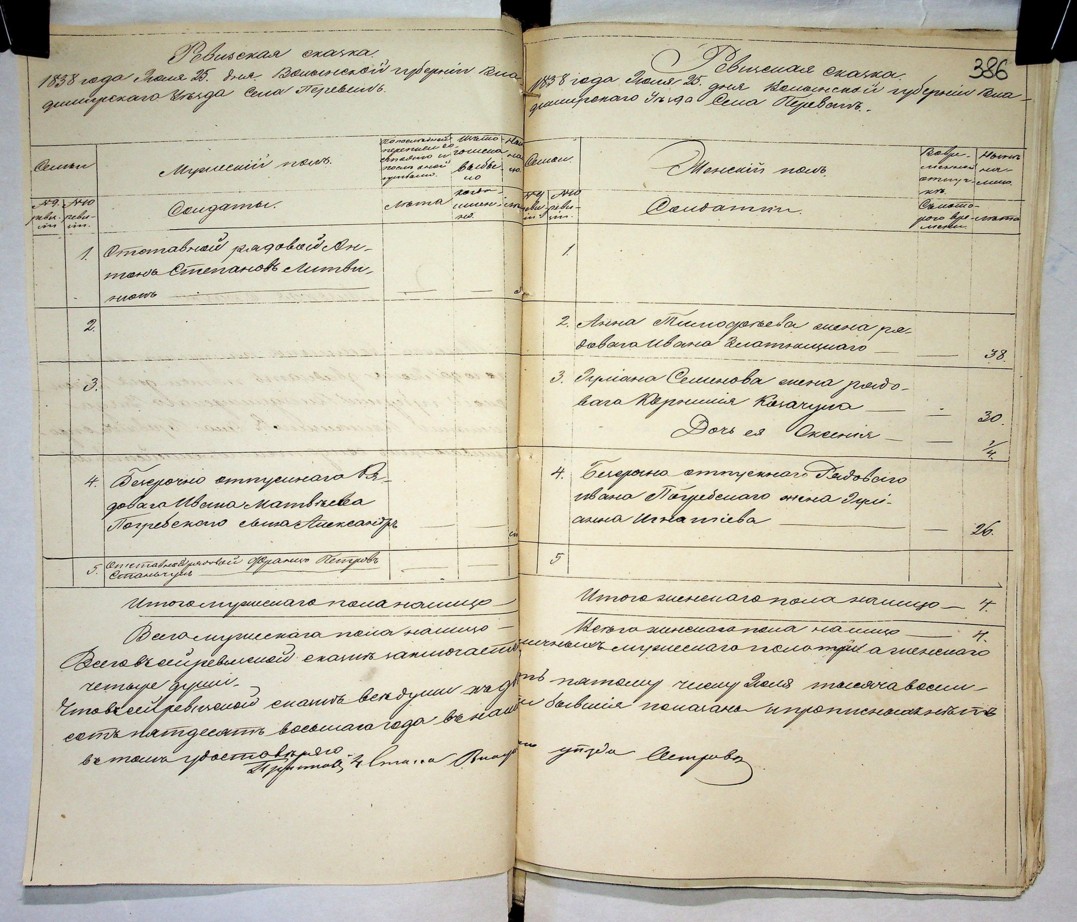 Ревизская сказка
1858 года Июля 25. дня. Волынской губернии Вла-
димирского Уезда Села Перевет.
Семьи
Мужеский полъ.
Солдаты.
лѣта
1. Отставной рядовой Ан-
тонъ Степановъ Литви-
нюкъ
2.
3.
4. Безсрочно отпускнаго Ря-
доваго Ивана Матвѣева
Погребского сынъ Александръ
5. Отставной рядовой Францъ Петровъ
Итого мужескаго пола налицо
Всего мужескаго пола налицо
386
Ревизская сказка.
1858 года Июля 25. дня Волынской губернии Вла-
димирского Уезда Села Перевет.
Семьи.
Женскій полъ.
Солдатки.
лѣта
1.
2. Анна Тимофеева жена ря-
доваго Ивана Златницкаго 38
3. Семенова жена рядо-
ваго Корнилія Казачука 30.
Дочь ея Ксенія 1/4.
4. Безсрочно отпускнаго Рядоваго
Ивана Погребскаго жена Улі-
анна Игнатіева 26.
5
Итого женскаго пола налицо 4.
Всего женскаго пола налицо 4.
Всего въ сей ревизской сказкѣ заключается наличныхъ мужескаго пола три а женскаго
четыре души.
Что въ сей ревизской сказкѣ всѣ души къ пятому числу Июля тысяча восем-
сотъ пятдесятъ восьмаго года въ бывшія показаны и прописныхъ нѣтъ
въ томъ удостовѣряю
Приставъ 4 Стана уѣзда Петровъ